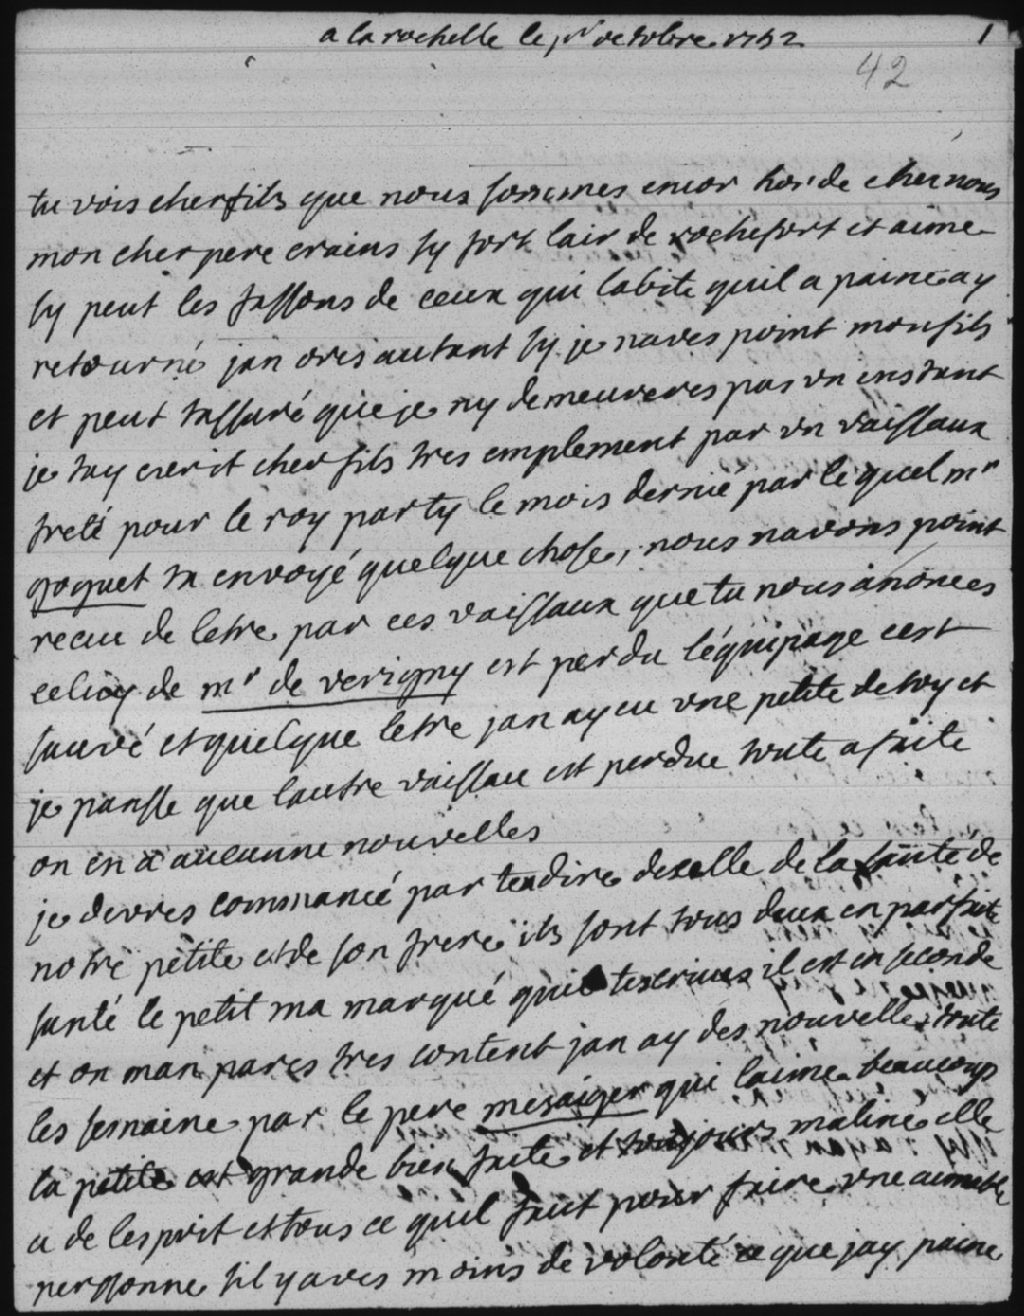 a la rochelle le pr octobre 1752
1
42
tu vois cher fils que nous sommes encor hor de cher nous
mon cher pere crains sy fort lair de rochefort et aime
sy peut les fassons de ceux qui labite quil a paine ay
retourné jan ores autant sy je naves point mon fils
et peut tassuré que je ny demeureres pas un instant
je tay ecrit cher fils tres emplement par un vaissaux
freté pour le roy party le mois dernié par le quel mr
goguet ta envoyé quelque chose, nous navons point
recue de letre par ces vaissaux que tu nous anonces
celuy de mr de verigny est perdu léquipage cest
sauvé et quelque letre jan ay eu une petite de toy et
je pansse que lautre vaissau est perdue toute a faite
on en a aucunne nouvelles
je devres commancé par tendire de celle de la santé de
notre petite et de son frere ils sont tous deux en parfaite
santé le petit ma marqué quil tescrives il est en seconde
et on man pares tres content jan ay des nouvelle toute
les semaine par le pere mesaiger qui laime beaucoup
la petite est grande bien faite et toujours maline elle
a de lesprit et tous ce quil faut pour faire une aimable
personne sil y aves moins de volonté ce que jay paine